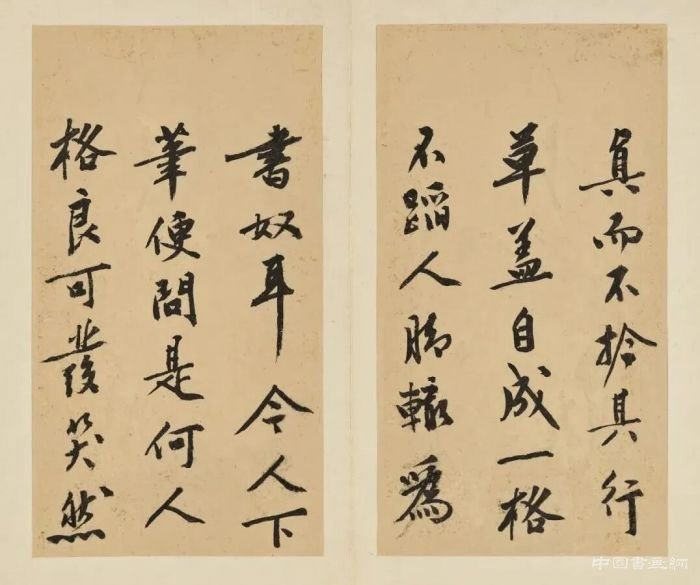 真而不拾其行
草盖自成一格
不蹈人脚轍爲
書奴耳今人下
筆便問是何人
格良可發笑然
中国書画網